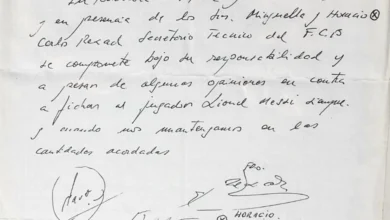 y en presencia de los srs. Minguella y Horacio ®
Carlos Rexach Secretario Tecnico del F.C.B
se compromete bajo su responsabilidad y
a pesar de algunas opiniones en contra
a fichar al jugador Lionel Messi siempre
y cuando nos mantengamos en las
cantidades acordadas
HORACIO.